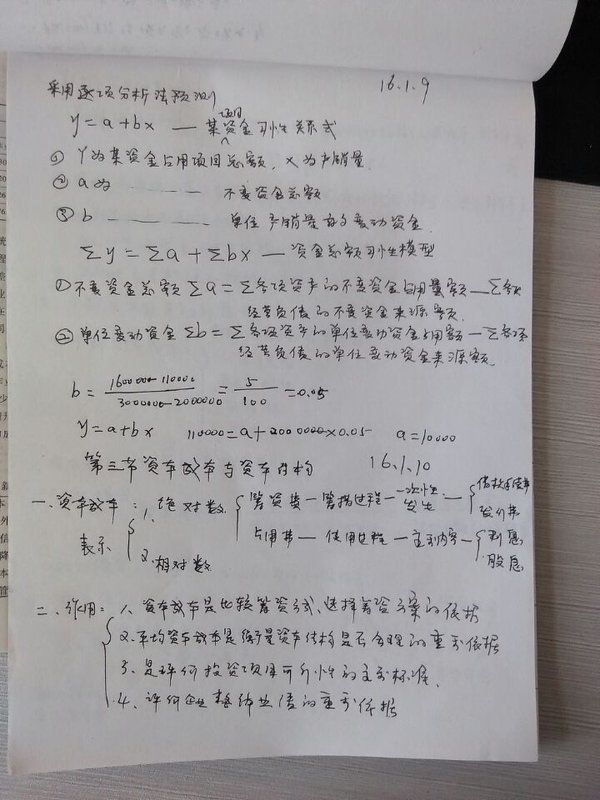 16.1.9
采用逐项分析法预测
y=a+bx — 某资金项目习性关系式
① Y为某资金占用项目总额，x为产销量
② a为 —————— 不变资金总额
③ b —————— 单位产销量的变动资金
Σy=Σa+Σbx — 资金总额习性模型
① 不变资金总额Σa=Σ各项资产的不变资金占用量额—Σ各项
经营负债的不变资金来源量额
② 单位变动资金Σb=Σ各项资产的单位变动资金占用额—Σ各项
经营负债的单位变动资金来源额
b= 160000-110000/3000000-2000000 = 5/100 =0.05
y=a+bx 110000=a+2000000×0.05 a=10000
第三节 资本成本与资本结构 16.1.10
一、资本成本： 1、绝对数 筹资费 — 筹措过程 — 一次性发生 — 借款手续费 发行费
表示 占用费 — 使用过程 — 主要内容 — 利息 股息
2、相对数
二、作用： 1、资本成本是比较筹资方式、选择筹资方案的依据
2、平均资本成本是衡量资本结构是否合理的重要依据
3、是评价投资项目可行性的主要标准、
4、评价企业整体业绩的重要依据